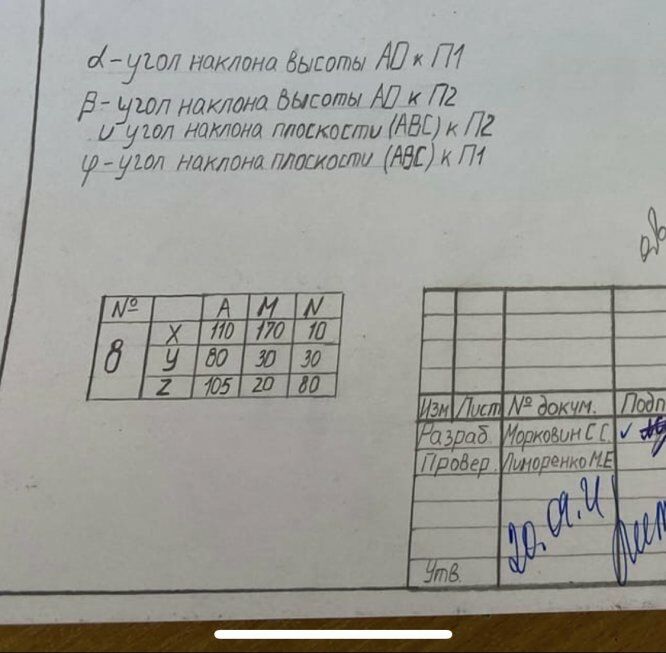 α-угол наклона высоты AD к П1
β-угол наклона высоты AD к П2
υ угол наклона плоскости (ABC) к П2
φ-угол наклона плоскости (ABC) к П1
№ A M N
8
X 110 170 10
Y 80 30 30
Z 105 20 80
Изм Лист № докум. Подп
Разраб. Морковин С С.
Провер. Лиморенко М.Е
Утв.